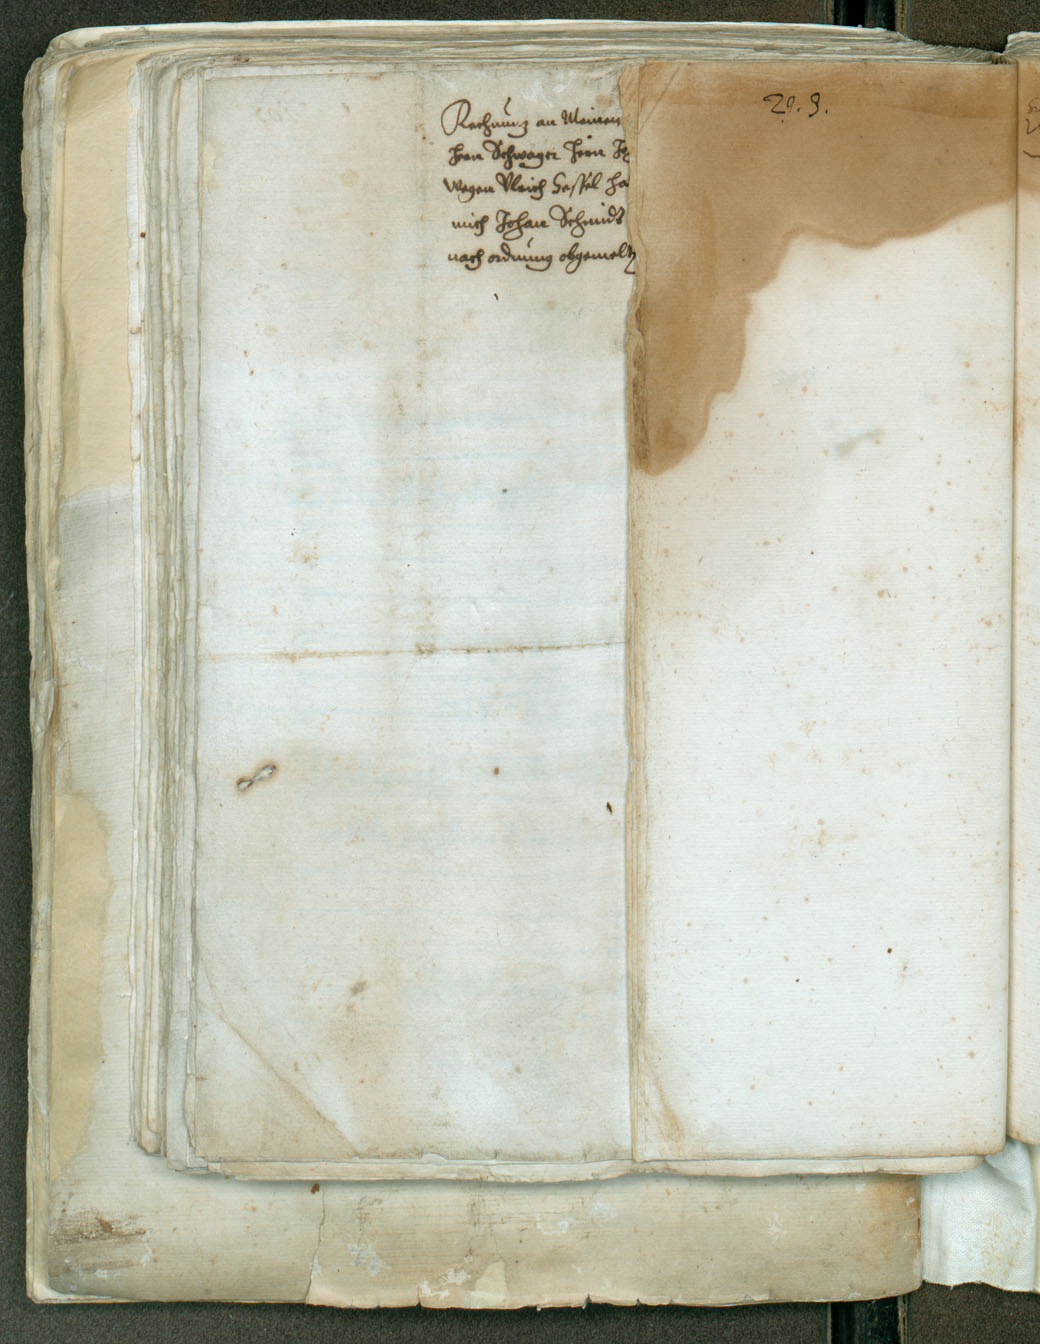 Rechnung an Meinen
Hern Schwager Hern Jo
wegen Vlrich Hessel ha
mich Johan Schmidt
nach ordnung obgemelt
29. 9.